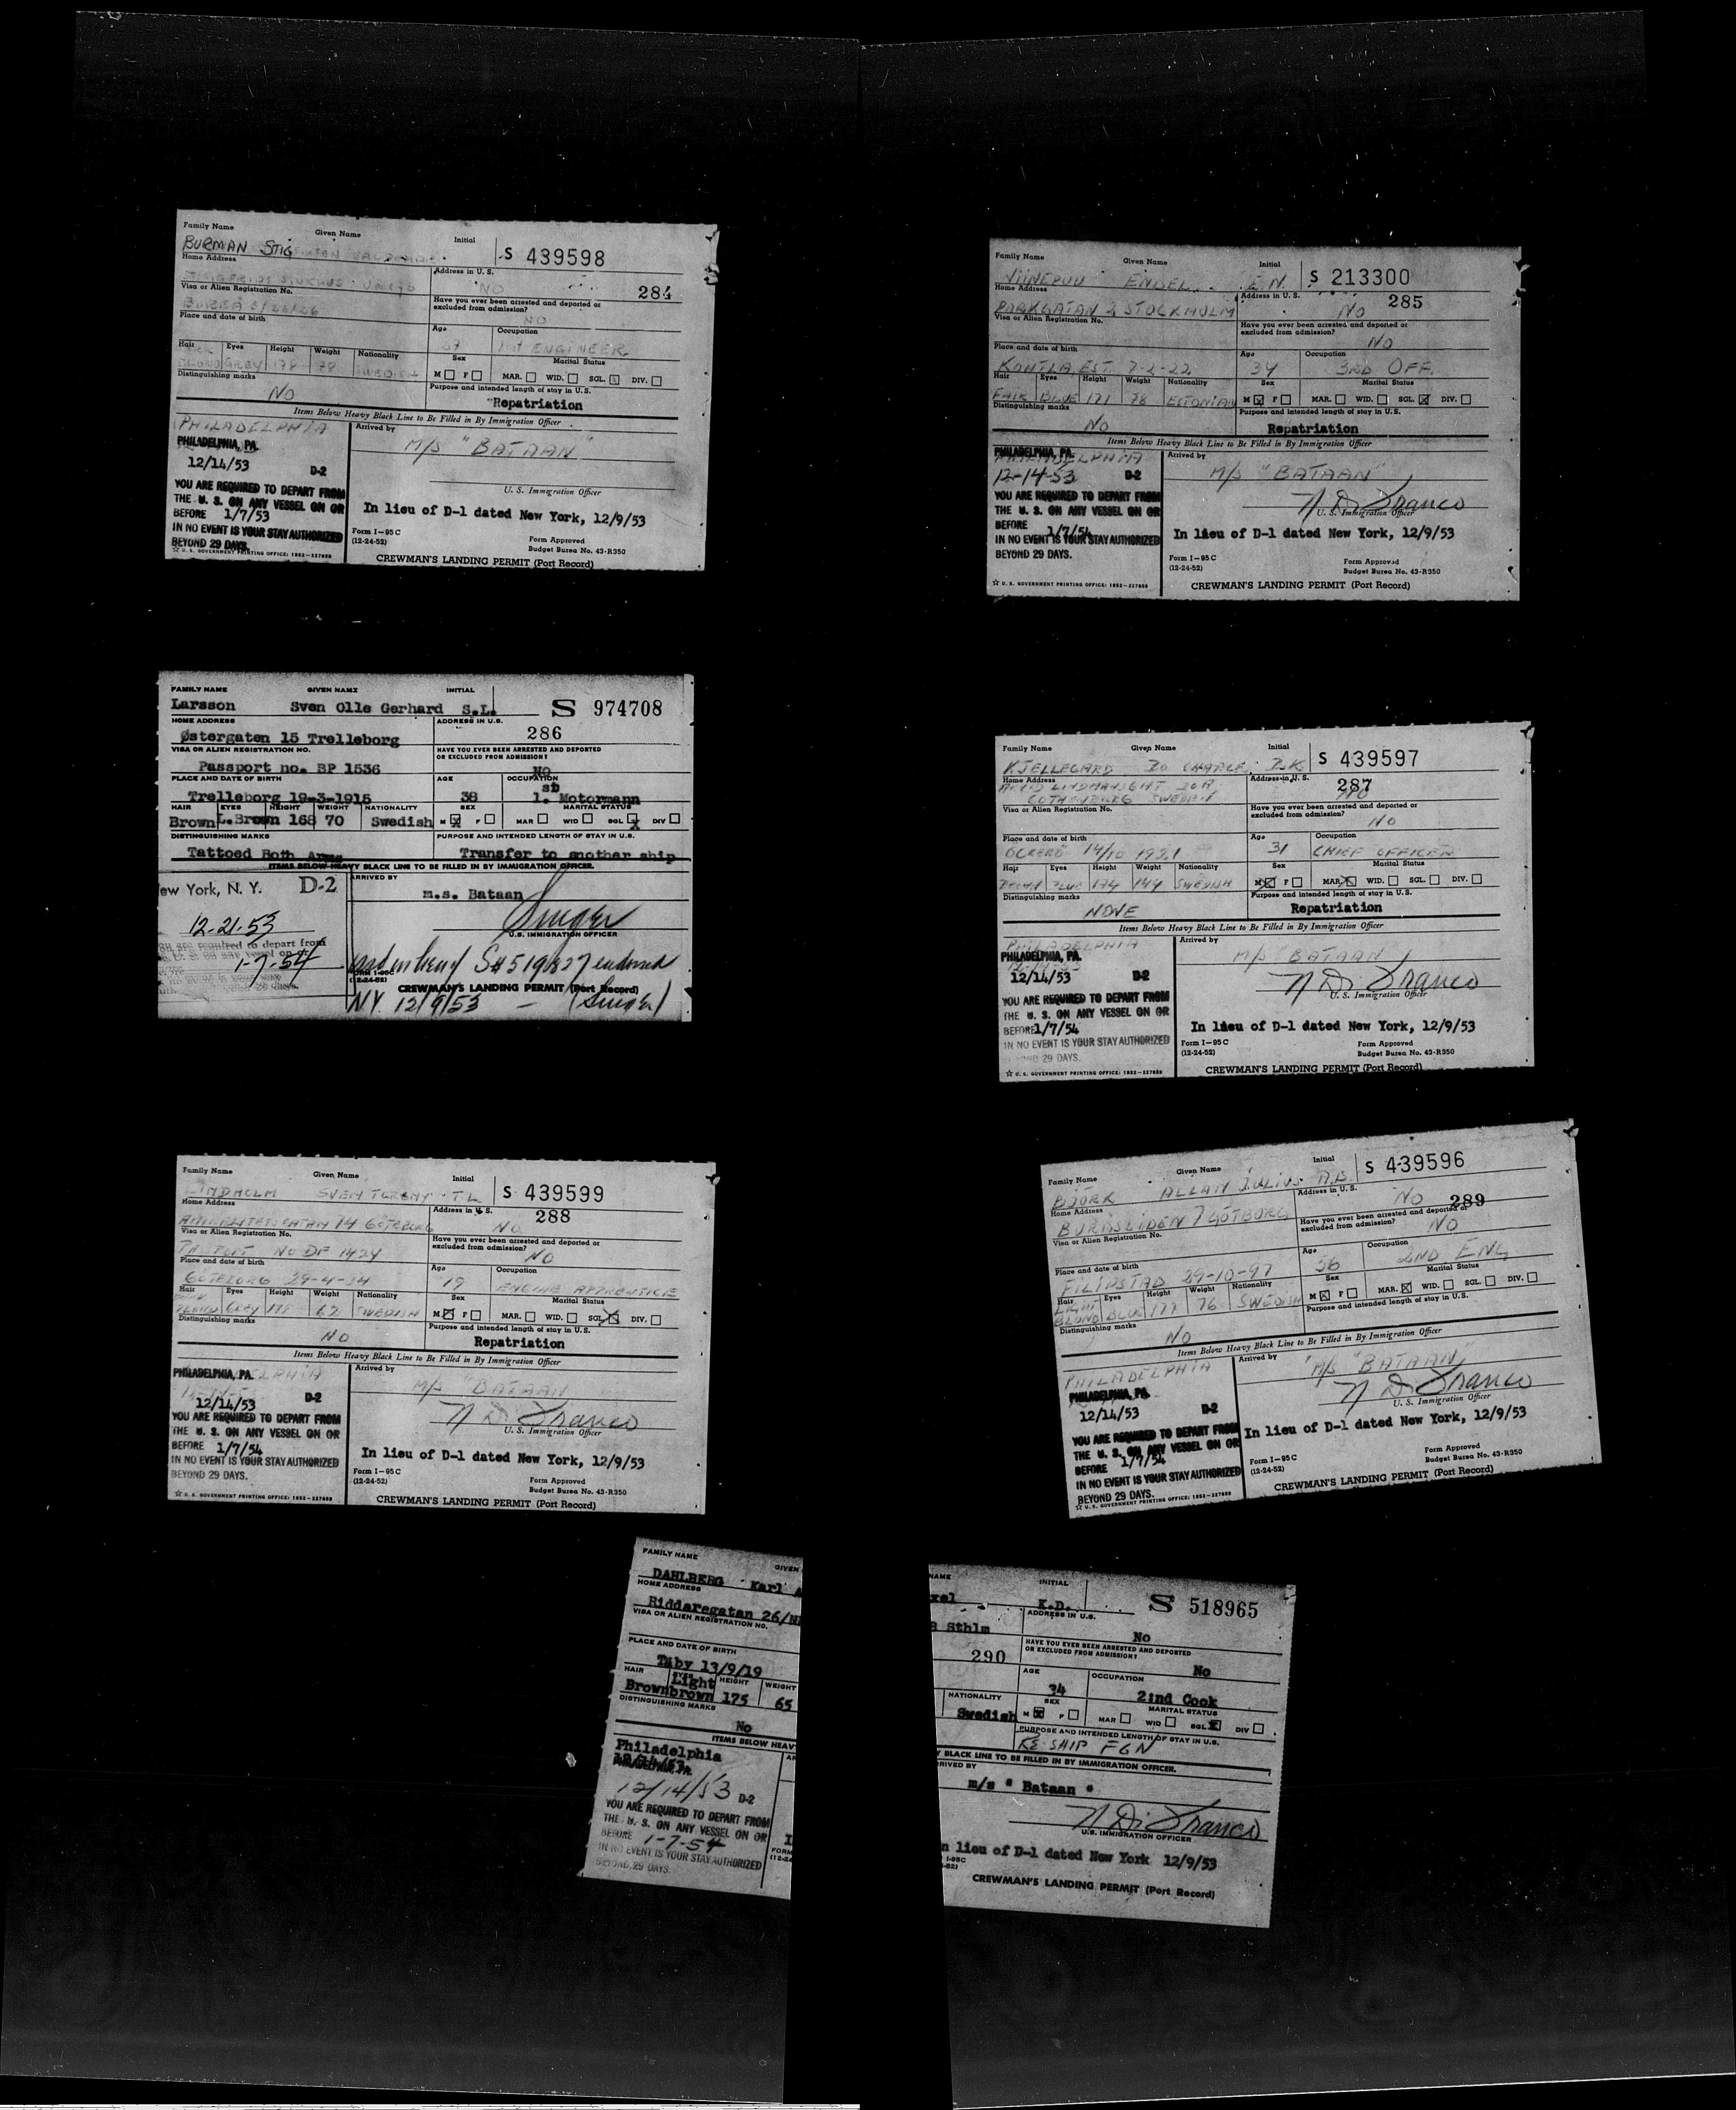 Family Name Given Name Initial
BURMAN STIG
S 439598
Home Address Address in U. S.
NO
284
Visa or Alien Registration No.
Have you ever been arrested and deported or
excluded from admission?
NO
Place and date of birth Age Occupation
1st ENGINEER
Hair Eyes Height Weight Nationality Sex Marital Status
BLOND GREY 178 78 SWEDISH
M F MAR. WID. SGL. DIV.
Distinguishing marks Purpose and intended length of stay in U.S.
NO Repatriation
Items Below Heavy Black Line to Be Filled in By Immigration Officer
PHILADELPHIA Arrived by
PHILADELPHIA, PA. M/S "BATAAN"
12/14/53 D-2
YOU ARE REQUIRED TO DEPART FROM
THE U. S. ON ANY VESSEL ON OR
BEFORE 1/7/53
IN NO EVENT IS YOUR STAY AUTHORIZED
BEYOND 29 DAYS.
U. S. Immigration Officer
In lieu of D-1 dated New York, 12/9/53
Form I-95 C
(12-24-52)
Form Approved
Budget Burea No. 43-R350
☆ U. S. GOVERNMENT PRINTING OFFICE: 1952-227859
CREWMAN'S LANDING PERMIT (Port Record)
Family Name Given Name Initial
ENDEL E.N.
S 213300
Home Address Address in U. S.
285
PARKGATAN 2 STOCKHOLM NO
Visa or Alien Registration No.
Have you ever been arrested and deported or
excluded from admission?
NO
Place and date of birth Age Occupation
KOHTLA, EST. 7-2-22 34 3RD OFF.
Hair Eyes Height Weight Nationality Sex Marital Status
FAIR BLUE 171 78 ESTONIAN
M F MAR. WID. SGL. DIV.
Distinguishing marks Purpose and intended length of stay in U.S.
NO Repatriation
Items Below Heavy Black Line to Be Filled in By Immigration Officer
PHILADELPHIA, PA. Arrived by
12-14-53 D-2 M/S "BATAAN"
YOU ARE REQUIRED TO DEPART FROM
THE U. S. ON ANY VESSEL ON OR
BEFORE 1/7/54
IN NO EVENT IS YOUR STAY AUTHORIZED
BEYOND 29 DAYS.
N Di Franco
U. S. Immigration Officer
In lieu of D-1 dated New York, 12/9/53
Form I-95 C
(12-24-52)
Form Approved
Budget Burea No. 43-R350
☆ U. S. GOVERNMENT PRINTING OFFICE: 1952-227859
CREWMAN'S LANDING PERMIT (Port Record)
FAMILY NAME GIVEN NAME INITIAL
Larsson Sven Olle Gerhard S.L.
S 974708
HOME ADDRESS ADDRESS IN U.S.
Østergaten 15 Trelleborg 286
VISA OR ALIEN REGISTRATION NO.
HAVE YOU EVER BEEN ARRESTED AND DEPORTED
OR EXCLUDED FROM ADMISSION?
Passport no. BP 1536 No
PLACE AND DATE OF BIRTH AGE OCCUPATION
Trelleborg 19-3-1915 38 1. Motormann
HAIR EYES HEIGHT WEIGHT NATIONALITY SEX MARITAL STATUS
Brown L.Brown 168 70 Swedish
M F MAR WID SGL DIV
DISTINGUISHING MARKS PURPOSE AND INTENDED LENGTH OF STAY IN U.S.
Tattoed Both Arms Transfer to another ship
ITEMS BELOW HEAVY BLACK LINE TO BE FILLED IN BY IMMIGRATION OFFICER.
ew York, N. Y. D-2 ARRIVED BY
m.s. Bataan
12-21-53
U.S. IMMIGRATION OFFICER
required to depart from
1-7-54
S#519827 endorsed
CREWMAN'S LANDING PERMIT (Port Record)
N.Y. 12/9/53
Family Name Given Name Initial
KJELLEGARD BO CHARLE B.K
S 439597
Home Address Address in U. S.
287
NO
GOTHENBURG SWEDEN
Visa or Alien Registration No.
Have you ever been arrested and deported or
excluded from admission?
NO
Place and date of birth Age Occupation
14/10 1921 31 CHIEF OFFICER
Hair Eyes Height Weight Nationality Sex Marital Status
BROWN BLUE 174 147 SWEDISH
M F MAR. WID. SGL. DIV.
Distinguishing marks Purpose and intended length of stay in U.S.
NONE Repatriation
Items Below Heavy Black Line to Be Filled in By Immigration Officer
PHILADELPHIA Arrived by
PHILADELPHIA, PA. M/S "BATAAN"
12/14/53 D-2
YOU ARE REQUIRED TO DEPART FROM
THE U. S. ON ANY VESSEL ON OR
BEFORE 1/7/54
IN NO EVENT IS YOUR STAY AUTHORIZED
29 DAYS.
N Di Franco
U. S. Immigration Officer
In lieu of D-1 dated New York, 12/9/53
Form I-95 C
(12-24-52)
Form Approved
Budget Burea No. 43-R350
☆ U. S. GOVERNMENT PRINTING OFFICE: 1952-227859
CREWMAN'S LANDING PERMIT (Port Record)
Family Name Given Name Initial
LINDHOLM SVEN TORGNY T.L
S 439599
Home Address Address in U. S.
288
14 GÖTEBORG NO
Visa or Alien Registration No.
Have you ever been arrested and deported or
excluded from admission?
PASSPORT NO DF 1424 NO
Place and date of birth Age Occupation
GÖTEBORG 29-4-34 19 ENGINE APPRENTICE
Hair Eyes Height Weight Nationality Sex Marital Status
BLOND GREY 178 67 SWEDISH
M F MAR. WID. SGL. DIV.
Distinguishing marks Purpose and intended length of stay in U.S.
NO Repatriation
Items Below Heavy Black Line to Be Filled in By Immigration Officer
PHILADELPHIA, PA. Arrived by
M/S "BATAAN"
12/14/53 D-2
YOU ARE REQUIRED TO DEPART FROM
THE U. S. ON ANY VESSEL ON OR
BEFORE 1/7/54
IN NO EVENT IS YOUR STAY AUTHORIZED
BEYOND 29 DAYS.
N Di Franco
U. S. Immigration Officer
In lieu of D-1 dated New York, 12/9/53
Form I-95 C
(12-24-52)
Form Approved
Budget Burea No. 43-R350
☆ U. S. GOVERNMENT PRINTING OFFICE: 1952-227859
CREWMAN'S LANDING PERMIT (Port Record)
Family Name Given Name Initial
BJÖRK ALLAN JULIUS A.B.
S 439596
Home Address Address in U. S.
NO 289
BORÅSLIDEN 7 GÖTBORG
Visa or Alien Registration No.
Have you ever been arrested and deported or
excluded from admission?
NO
Place and date of birth Age Occupation
FILIPSTAD 29-10-97 56 2ND ENG
Hair Eyes Height Weight Nationality Sex Marital Status
LIGHT BLOND BLUE 177 76 SWEDISH
M F MAR. WID. SGL. DIV.
Distinguishing marks Purpose and intended length of stay in U.S.
NO
Items Below Heavy Black Line to Be Filled in By Immigration Officer
PHILADELPHIA Arrived by
PHILADELPHIA, PA. M/S "BATAAN"
12/14/53 D-2
YOU ARE REQUIRED TO DEPART FROM
THE U. S. ON ANY VESSEL ON OR
BEFORE 1/7/54
IN NO EVENT IS YOUR STAY AUTHORIZED
BEYOND 29 DAYS.
N Di Franco
U. S. Immigration Officer
In lieu of D-1 dated New York, 12/9/53
Form I-95 C
(12-24-52)
Form Approved
Budget Burea No. 43-R350
☆ U. S. GOVERNMENT PRINTING OFFICE: 1952-227859
CREWMAN'S LANDING PERMIT (Port Record)
FAMILY NAME GIVEN
DAHLBERG Karl A
HOME ADDRESS
Riddaregatan 26/
VISA OR ALIEN REGISTRATION NO.
PLACE AND DATE OF BIRTH
Täby 13/9/19
HAIR HEIGHT WEIGHT
Light
Brown brown 175 65
DISTINGUISHING MARKS
No
ITEMS BELOW HEAV
Philadelphia
12/14/53 D-2
YOU ARE REQUIRED TO DEPART FROM
THE U. S. ON ANY VESSEL ON OR
BEFORE 1-7-54
IN NO EVENT IS YOUR STAY AUTHORIZED
BEYOND 29 DAYS.
NAME INITIAL
xel K.D.
S 518965
ADDRESS IN U.S.
Sthlm No
HAVE YOU EVER BEEN ARRESTED AND DEPORTED
OR EXCLUDED FROM ADMISSION?
290 No
AGE OCCUPATION
34 2ind Cook
NATIONALITY SEX MARITAL STATUS
Swedish M F MAR WID SGL DIV
PURPOSE AND INTENDED LENGTH OF STAY IN U.S.
RE SHIP FGN
Y BLACK LINE TO BE FILLED IN BY IMMIGRATION OFFICER.
RIVED BY
m/s " Bataan "
N Di Franco
U.S. IMMIGRATION OFFICER
n lieu of D-1 dated New York 12/9/53
I-95C
-52)
CREWMAN'S LANDING PERMIT (Port Record)